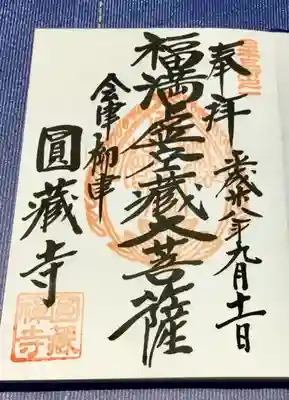 奉拝
平成廿八年九月十一日
福満虚空藏大菩薩
会津柳津
圓藏寺
圓藏禅寺